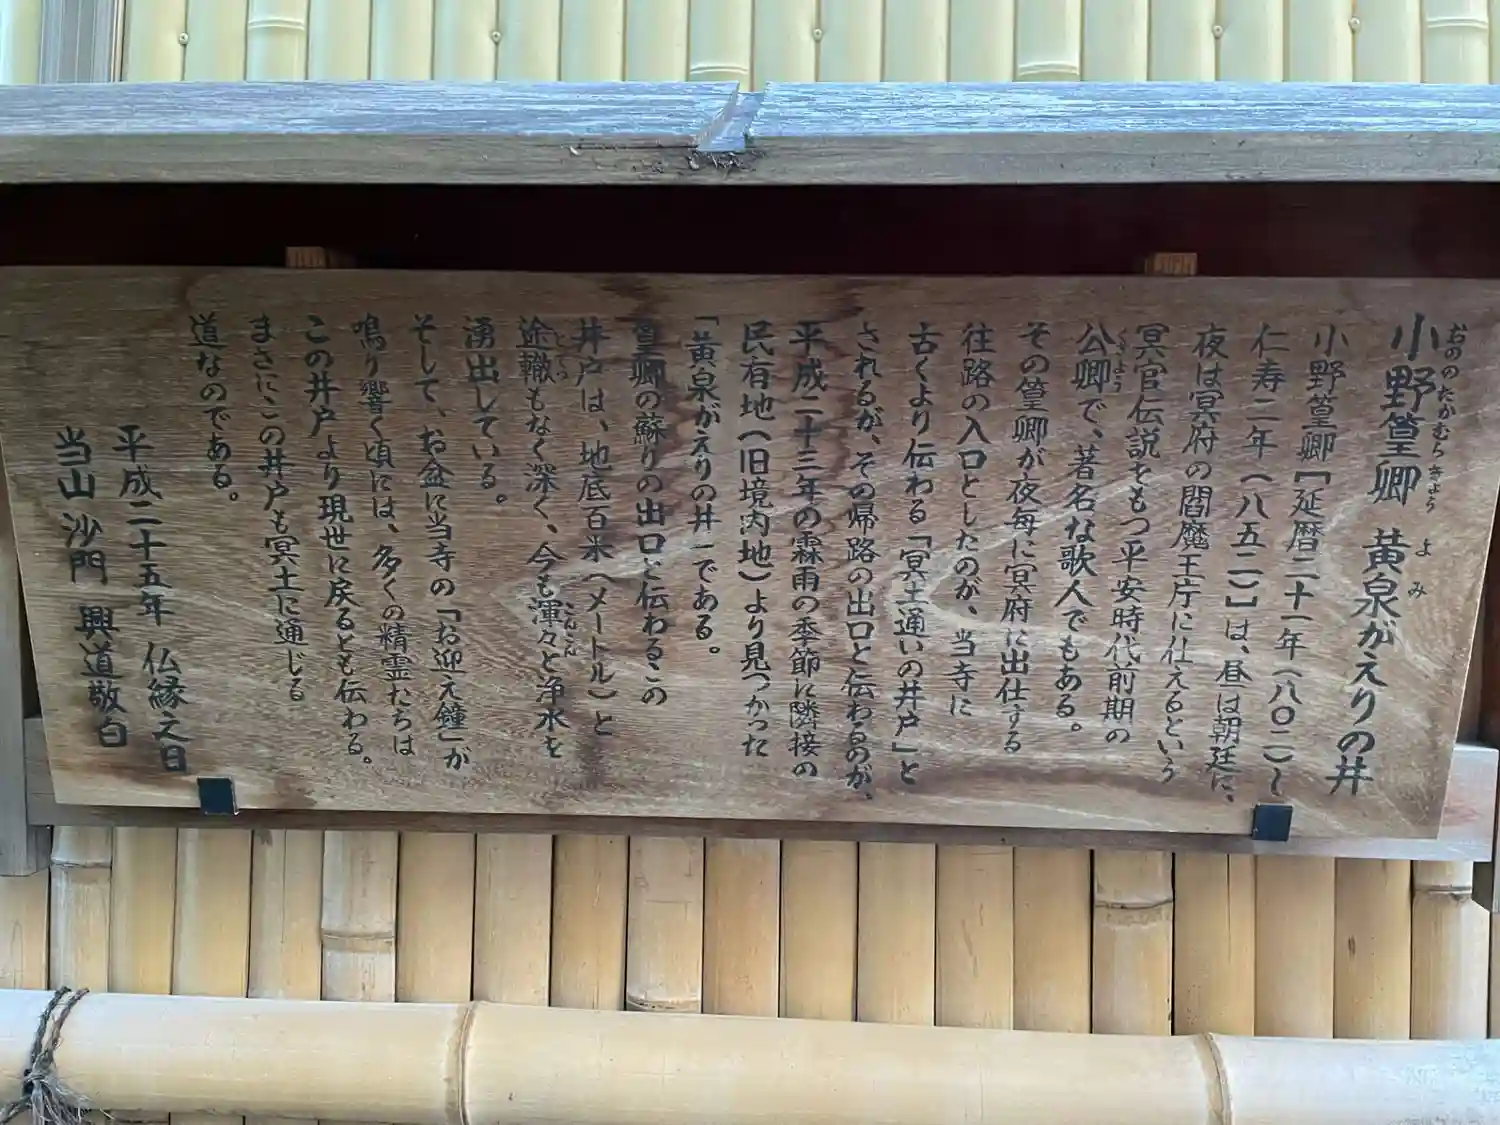 小野篁卿 黄泉がえりの井
おののたかむらきょう よみ
小野篁卿［延暦二十一年（八〇二）～
仁寿二年（八五二）］は、昼は朝廷に、
夜は冥府の閻魔王庁に仕えるという
冥官伝説をもつ平安時代前期の
公卿で、著名な歌人でもある。
くぎょう
その篁卿が夜毎に冥府に出仕する
往路の入口としたのが、当寺に
古くより伝わる「冥土通いの井戸」と
されるが、その帰路の出口と伝わるのが、
平成二十三年の霖雨の季節に隣接の
民有地（旧境内地）より見つかった
「黄泉がえりの井」である。
篁卿の蘇りの出口と伝わるこの
井戸は、地底百米（メートル）と
途轍もなく深く、今も渾々と浄水を
とてつ こんこん
湧出している。
そして、お盆に当寺の「お迎え鐘」が
鳴り響く頃には、多くの精霊たちは
この井戸より現世に戻るとも伝わる。
まさにこの井戸も冥土に通じる
道なのである。
平成二十五年 仏縁之日
当山 沙門 興道敬白